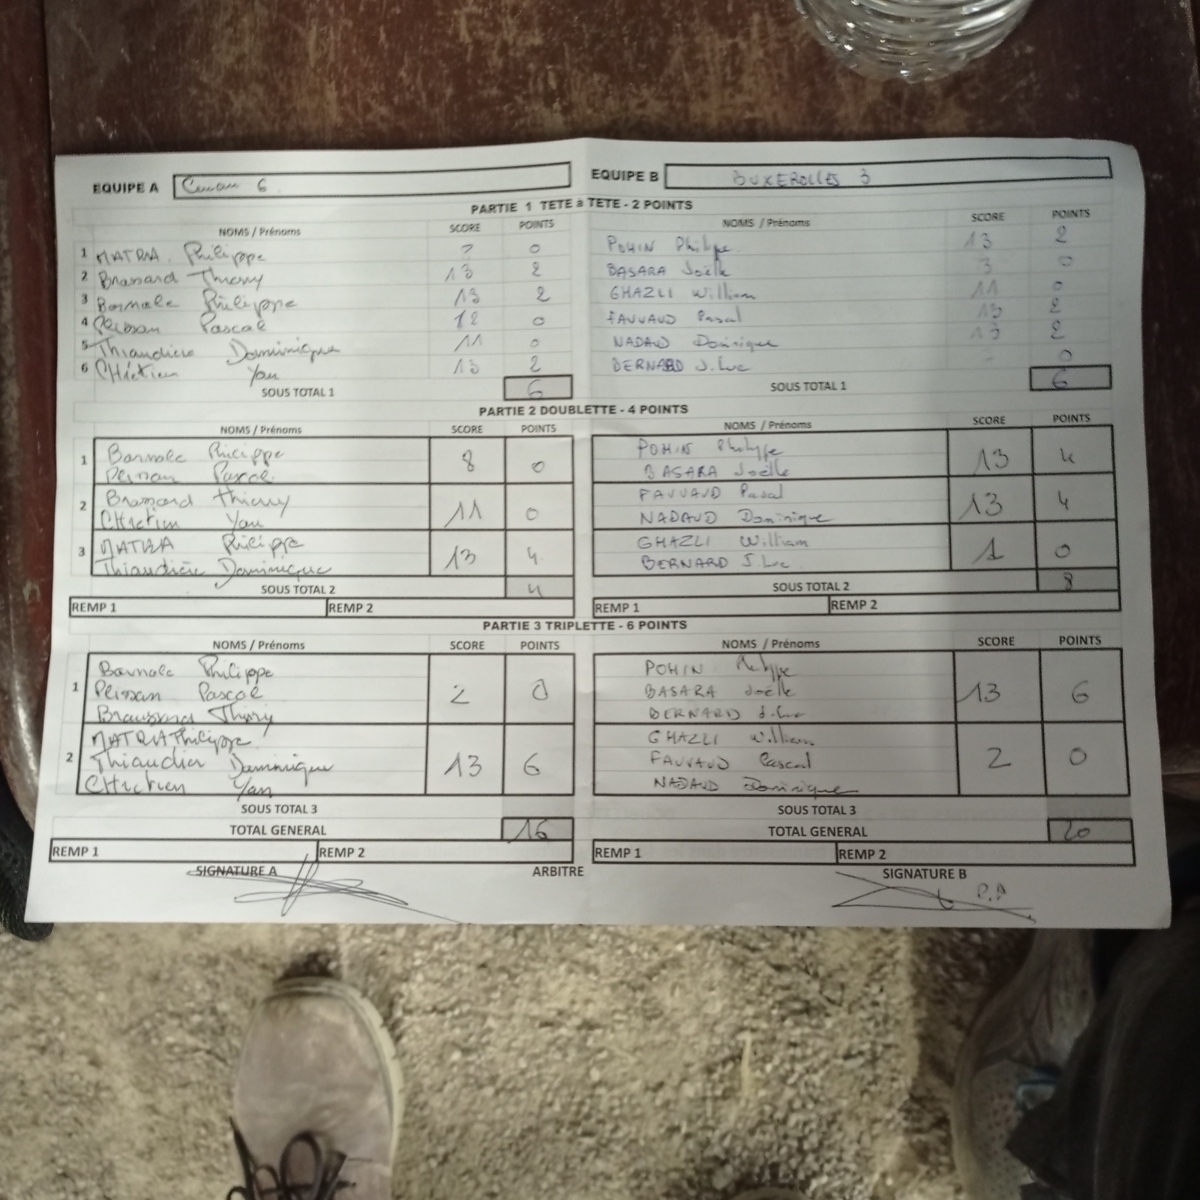 EQUIPE A Civaux 6 EQUIPE B BUXEROLLES 3
PARTIE 1 TETE à TETE - 2 POINTS
NOMS / Prénoms SCORE POINTS NOMS / Prénoms SCORE POINTS
1 MATRIA Philippe 7 0 POHIN Philippe 13 2
2 Brassard Thierry 13 2 BASARA Joëlle 3 0
3 Barnole Philippe 13 2 GHAZLI William 11 0
4 Plissan Pascal 12 0 FAUVAUD Pascal 13 2
5 Thiaudière Dominique 11 0 NADAUD Dominique 13 2
6 CHrétien Yan 13 2 BERNARD J.Luc - 0
SOUS TOTAL 1 6 SOUS TOTAL 1 6
PARTIE 2 DOUBLETTE - 4 POINTS
NOMS / Prénoms SCORE POINTS NOMS / Prénoms SCORE POINTS
1 Barnole Philippe 8 0 POHIN Philippe 13 4
Plissan Pascal BASARA Joëlle
2 Brassard Thierry 11 0 FAUVAUD Pascal 13 4
CHrétien Yan NADAUD Dominique
3 MATRIA Philippe 13 4 GHAZLI William 1 0
Thiaudière Dominique BERNARD J.Luc
SOUS TOTAL 2 4 SOUS TOTAL 2 8
REMP 1 REMP 2 REMP 1 REMP 2
PARTIE 3 TRIPLETTE - 6 POINTS
NOMS / Prénoms SCORE POINTS NOMS / Prénoms SCORE POINTS
Barnole Philippe POHIN Philippe
1 Plissan Pascal 2 0 BASARA Joëlle 13 6
Brassard Thierry BERNARD J.Luc
MATRIA Philippe GHAZLI William
2 Thiaudier Dominique 13 6 FAUVAUD Pascal 2 0
CHrétien Yan NADAUD Dominique
SOUS TOTAL 3 SOUS TOTAL 3
TOTAL GENERAL 16 TOTAL GENERAL 20
REMP 1 REMP 2 REMP 1 REMP 2
SIGNATURE A ARBITRE SIGNATURE B